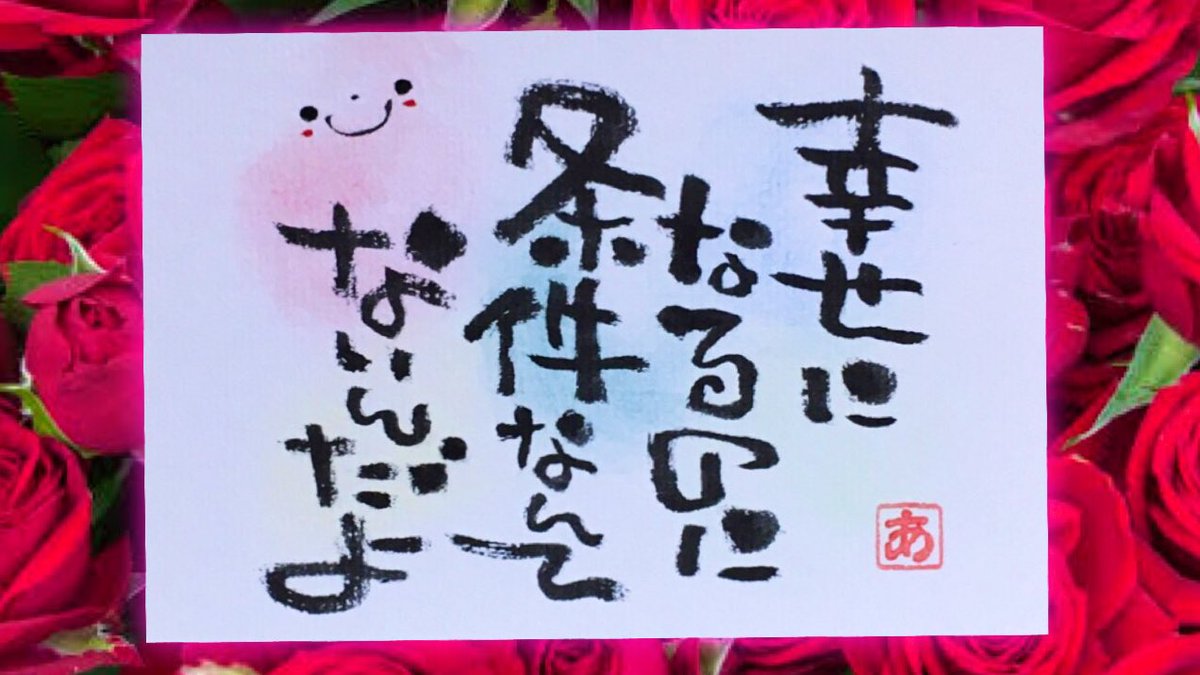 幸せに
なるのに
条件なんて
ないんだよ
あ